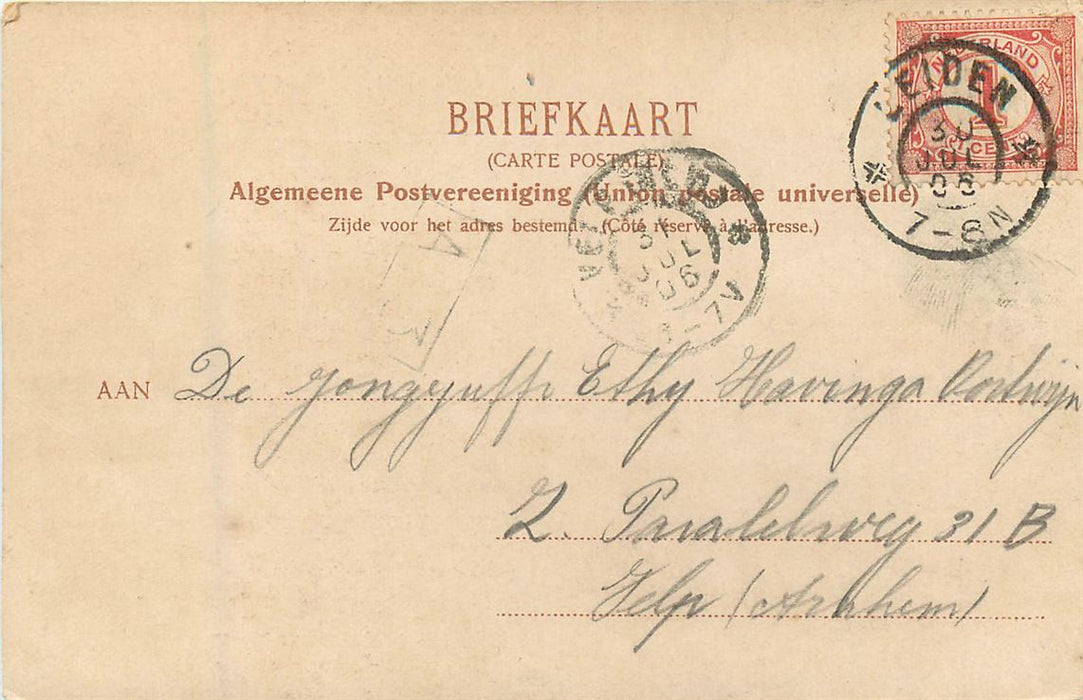 NEDERLAND
1
CENT
LEIDEN
30
JUL
06
7-8N
BRIEFKAART
(CARTE POSTALE)
Algemeene Postvereeniging (Union postale universelle)
Zijde voor het adres bestemd. (Côté réservé à l'adresse.)
VELP
31
JUL
06
-7V
A
3
AAN De jongejuffr Ethy Havinga Oostwijn
Z. Paralelweg 31 B
Velp (Arnhem)